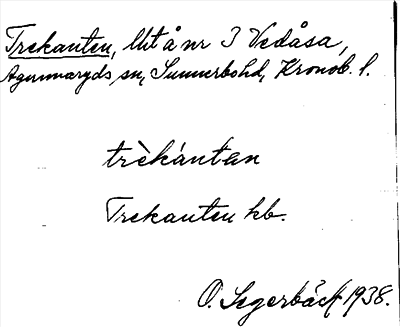 Trekanten, lht å nr 3 Vedåsa,
Agunnaryds sn, Sunnerbo hd, Kronob. l.
trèkántan
Trekanten kb.
O. Segerbäck 1938.